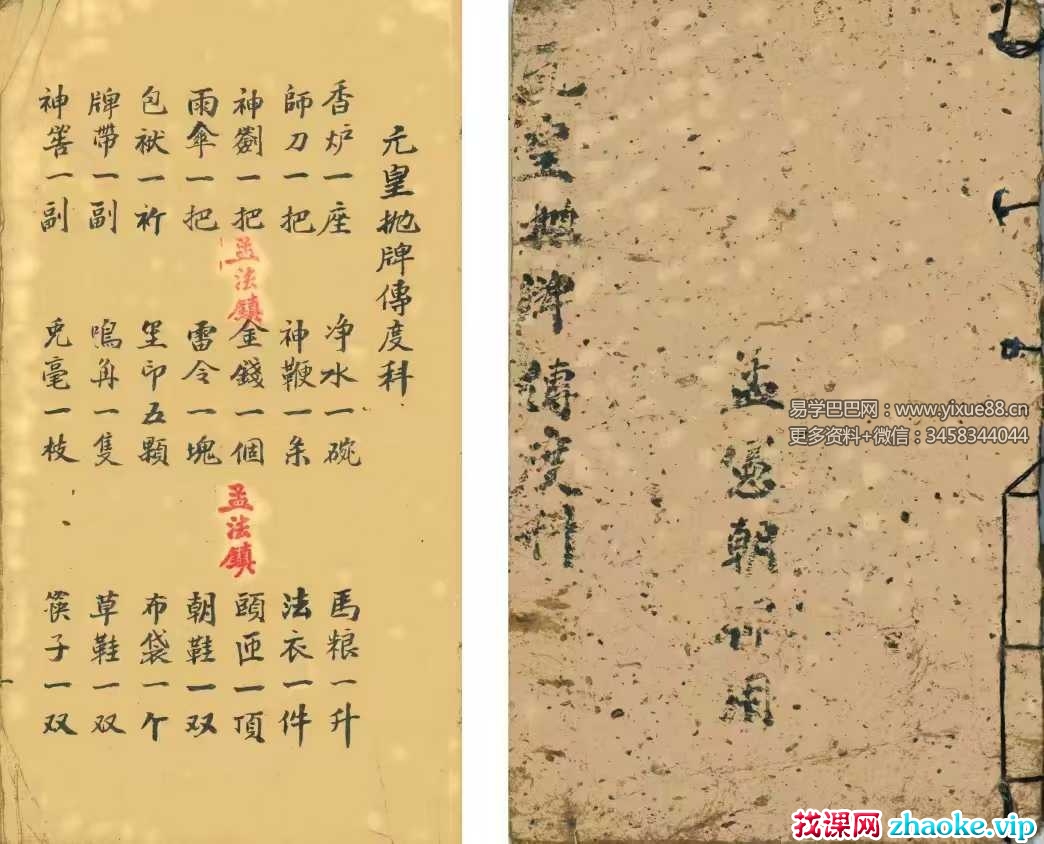 元皇抛牌傳度科
香炉一座 净水一碗 馬粮一升
師刀一把 神鞭一条 法衣一件
神劍一把 金錢一個 頭匝一頂
雨傘一把 雷令一塊 朝鞋一双
包袱一 印五顆 布袋一个
牌帶一副 鳴角一隻 草鞋一双
神筶一副 兎毫一枝 筷子一双
孟法鎮
孟法鎮
孟 朝 用
元皇 牌傳度科
易学巴巴网：www.yixue88.cn
更多资料+微信：3458344044
找课网 zhaoke.vip